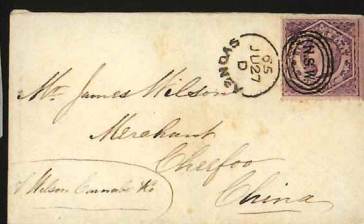 SYDNEY
65
JU 27
D
N.S.W.
Mr. James Wilson
Merchant
Cheefoo
China
Wilson Cornabé & Co